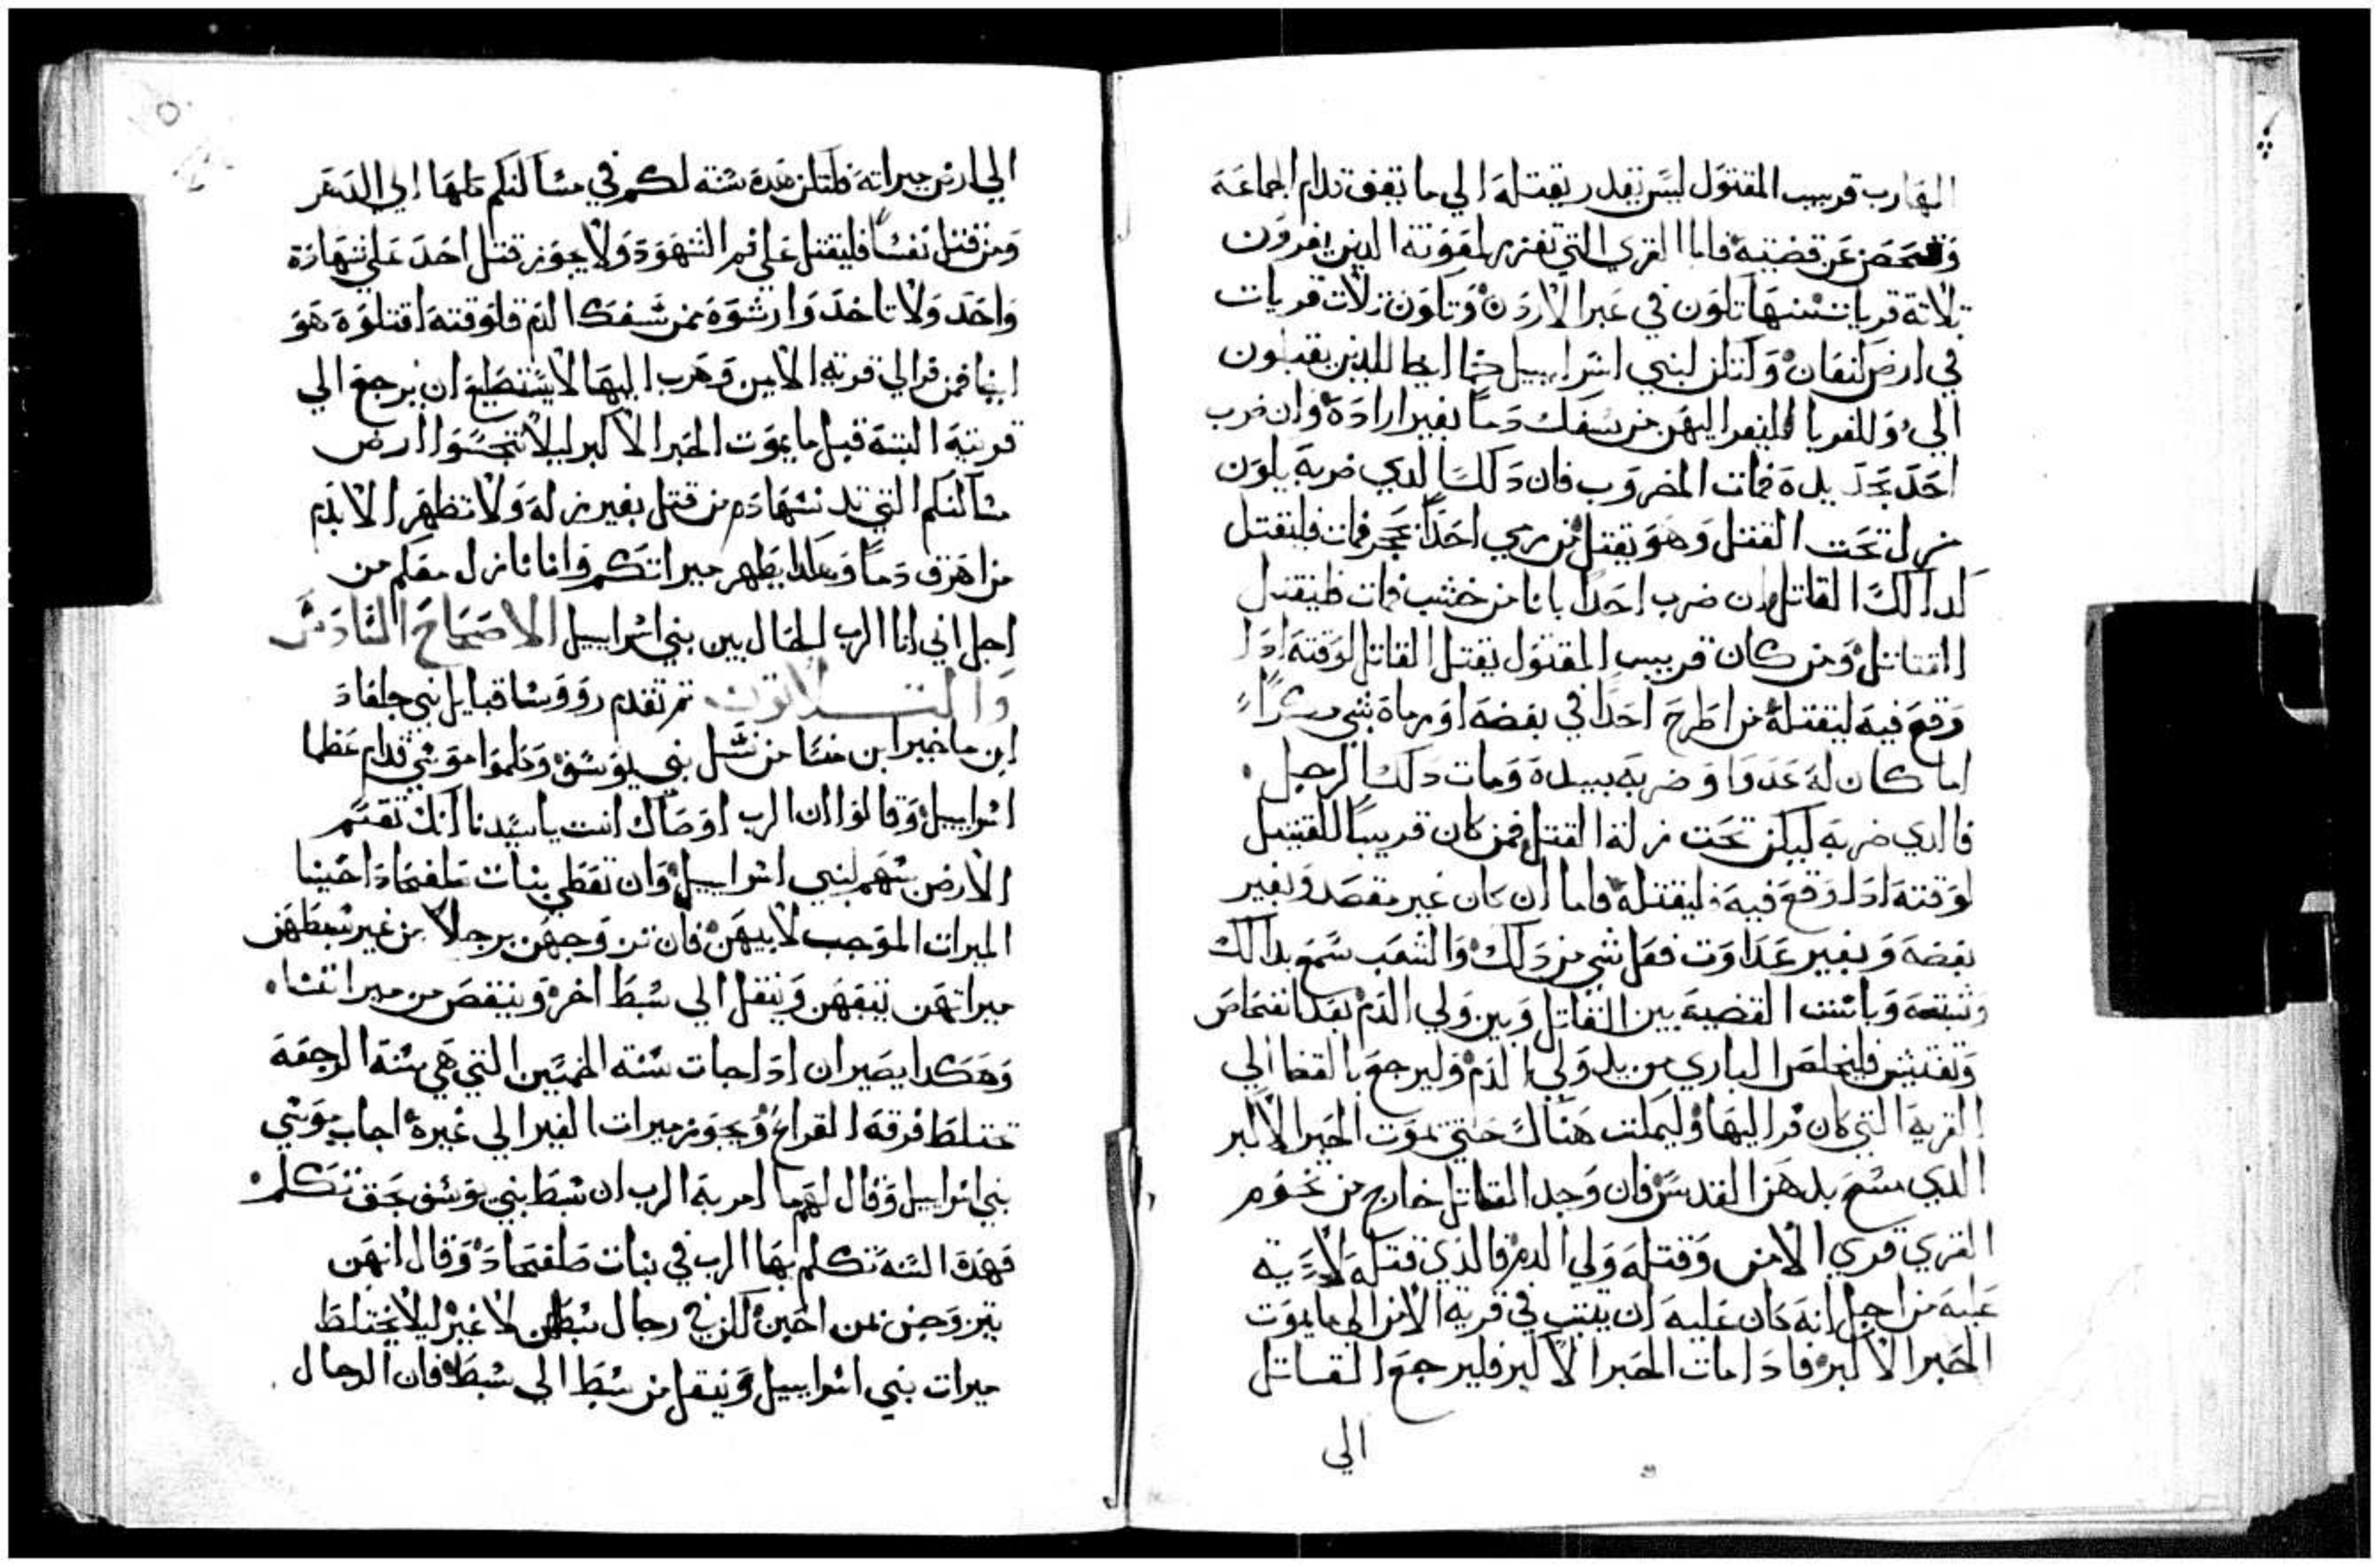 الهارب قريب المقتول ليس يقدر يقتله الي ما يقف قدام الجماعة
وتفحص عن قضيته فاما القري التي تفرز لمعونة الدين يفرون
تلاتة قريات منها تكون في عبر الاردن وتكون تلات قريات
في ارض كنعان ولتكن لبني اسراييل كما ايضا للدين يقبلون
الي وللغربا فليفر اليهن من سفك دما بغير ارادة وان ضرب
احد بحديدة فمات المضروب فان دلك الدي ضربه يكون
زل تحت القتل وهو يقتل من رمي احدا بحجر فمات فليقتل
كدالك القاتل وان ضرب احدا بانا من خشب فمات فليقتل
القاتل ومن كان قريب المقتول يقتل القاتل لوقته ادا
وقع فيه ليقتله من اطرح احدا في بغضه او رماه بشي
اما كان له عدوا وضربه بيده ومات دلك الرجل
فالدي ضربه ليكن تحت زلة القتل فمن كان قريبا للقتيل
لوقته ادا وقع فيه فليقتله فاما ان كان غير مقصد وبغير
بغضه وبغير عداوت فعل شي من دلك والشعب سمع بدالك
وثبتعه وباتنت القضية بين القاتل وبين ولي الدم بعد انفحاص
وتفتيش فليخلص الباري من يد ولي الدم وليرجع بالقضا الي
القرية التي كان فر اليها وليمكت هناك حتي يموت الحبر الاكبر
الدي مسح بدهن القدس فان وجد القاتل خارج من تخوم
القري قري الامن وقتله ولي الدم فالدي قتله لا دية
عليه من اجل انه كان عليه ان يتبت في قرية الامن الي ما يموت
الحبر الاكبر فادا مات الحبر الاكبر فليرجع القاتل
الي
الي ارض ميراته فلتكن هده سنة لكم في مساكنكم كلها الي الدهر
ومن قتل نفسا فليقتل علي فم الشهود ولا يجوز قتل احد علي شهادة
واحد ولا تاخدوا رشوة ممن سفك الدم فلوقته اقتلوه هو
ايضا فمن فر الي قرية الامن وهرب اليها لا يستطيع ان يرجع الي
قريته البتة قبل ما يموت الحبر الاكبر ليلا تنجسوا ارض
مساكنكم التي تدنسها دم من قتل بغير زله ولا تطهر الا بدم
من اهرق دما وهكدا يطهر ميراتكم وانا نازل معكم من
اجل اني انا الرب الحال بين بني اسراييل الاصحاح السادس
والتلاتون تم تقدم رووسا قبايل بني جلعاد
ابن ماخير ابن منسا من نسل بني يوسف وكلموا موسي قدام عظما
اسراييل وقالوا ان الرب اوصاك انت يا سيدنا انك تقسم
الارض سهم لبني اسراييل وان تعطي بنات صلفحاد اخينا
الميرات الموجب لابيهن فان تزوجهن رجلا من غير سبطهن
ميراتهن يتبعهن وينتقل الي سبط اخر وينتقص من ميراتنا
وهكدا يصير ان ادا جات سنة الخمسين التي هي سنة الرجعة
تختلط فرقة القراع ويجوز ميرات الغير الي غيره اجاب موسي
بني اسراييل وقال لهم ما امر به الرب ان سبط بني يوسف بحق تكلم
فهده السنة تكلم بها الرب في بنات صلفحاد وقال انهن
يتزوجن بمن احبن لكن في رجال سبطهن لا غير ليلا يختلط
ميرات بني اسراييل وينتقل من سبط الي سبط فان الرجال